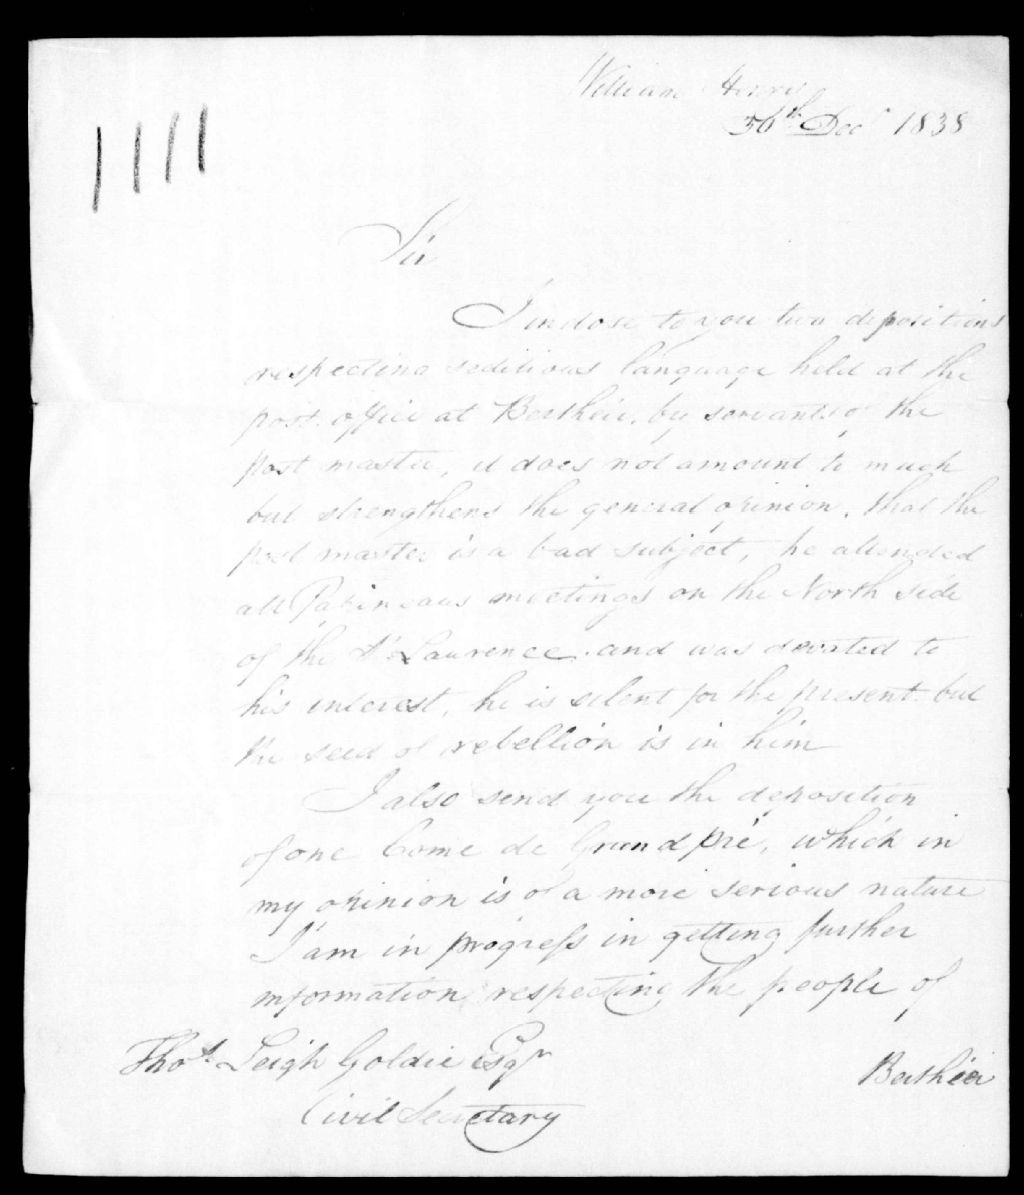 William Henry
30th Decr 1838
Sir
I inclose to you two depositions
respecting seditious language held at the
post office at Berthier, by servants of the
post master, it does not amount to much
but strengthens the general opinion, that the
post master is a bad subject, he attended
all Papineaus meetings on the North side
of the St Laurence and was devoted to
his interest, he is silent for the present but
the seed of rebellion is in him
I also send you the deposition
of one Come de Grand pré, which in
my opinion is of a more serious nature
I am in progress in getting further
information respecting the people of
Berthier
Thos Leigh Goldie Esqr
Civil Secretary